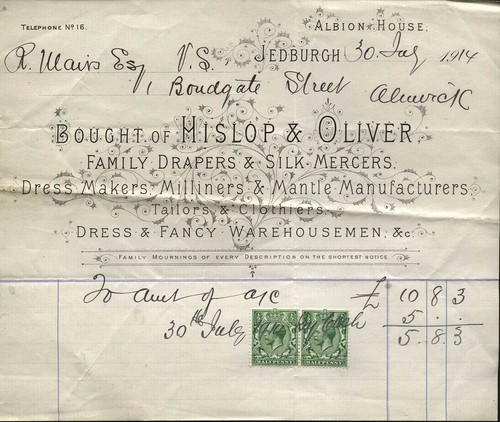 TELEPHONE Nº 16.
ALBION HOUSE,
JEDBURGH 30 July 1914
R. Mairs Esq, V.S.
1 Bondgate Street Alnwick
BOUGHT OF HISLOP & OLIVER,
FAMILY DRAPERS & SILK MERCERS,
Dress Makers, Milliners & Mantle Manufacturers,
Tailors & Clothiers,
DRESS & FANCY WAREHOUSEMEN, &c.
FAMILY MOURNINGS OF EVERY DESCRIPTION ON THE SHORTEST NOTICE
To amt of a/c £ 10 8 3
30th July By Cash 5 . .
5 . 8 . 3
HALFPENNY HALFPENNY